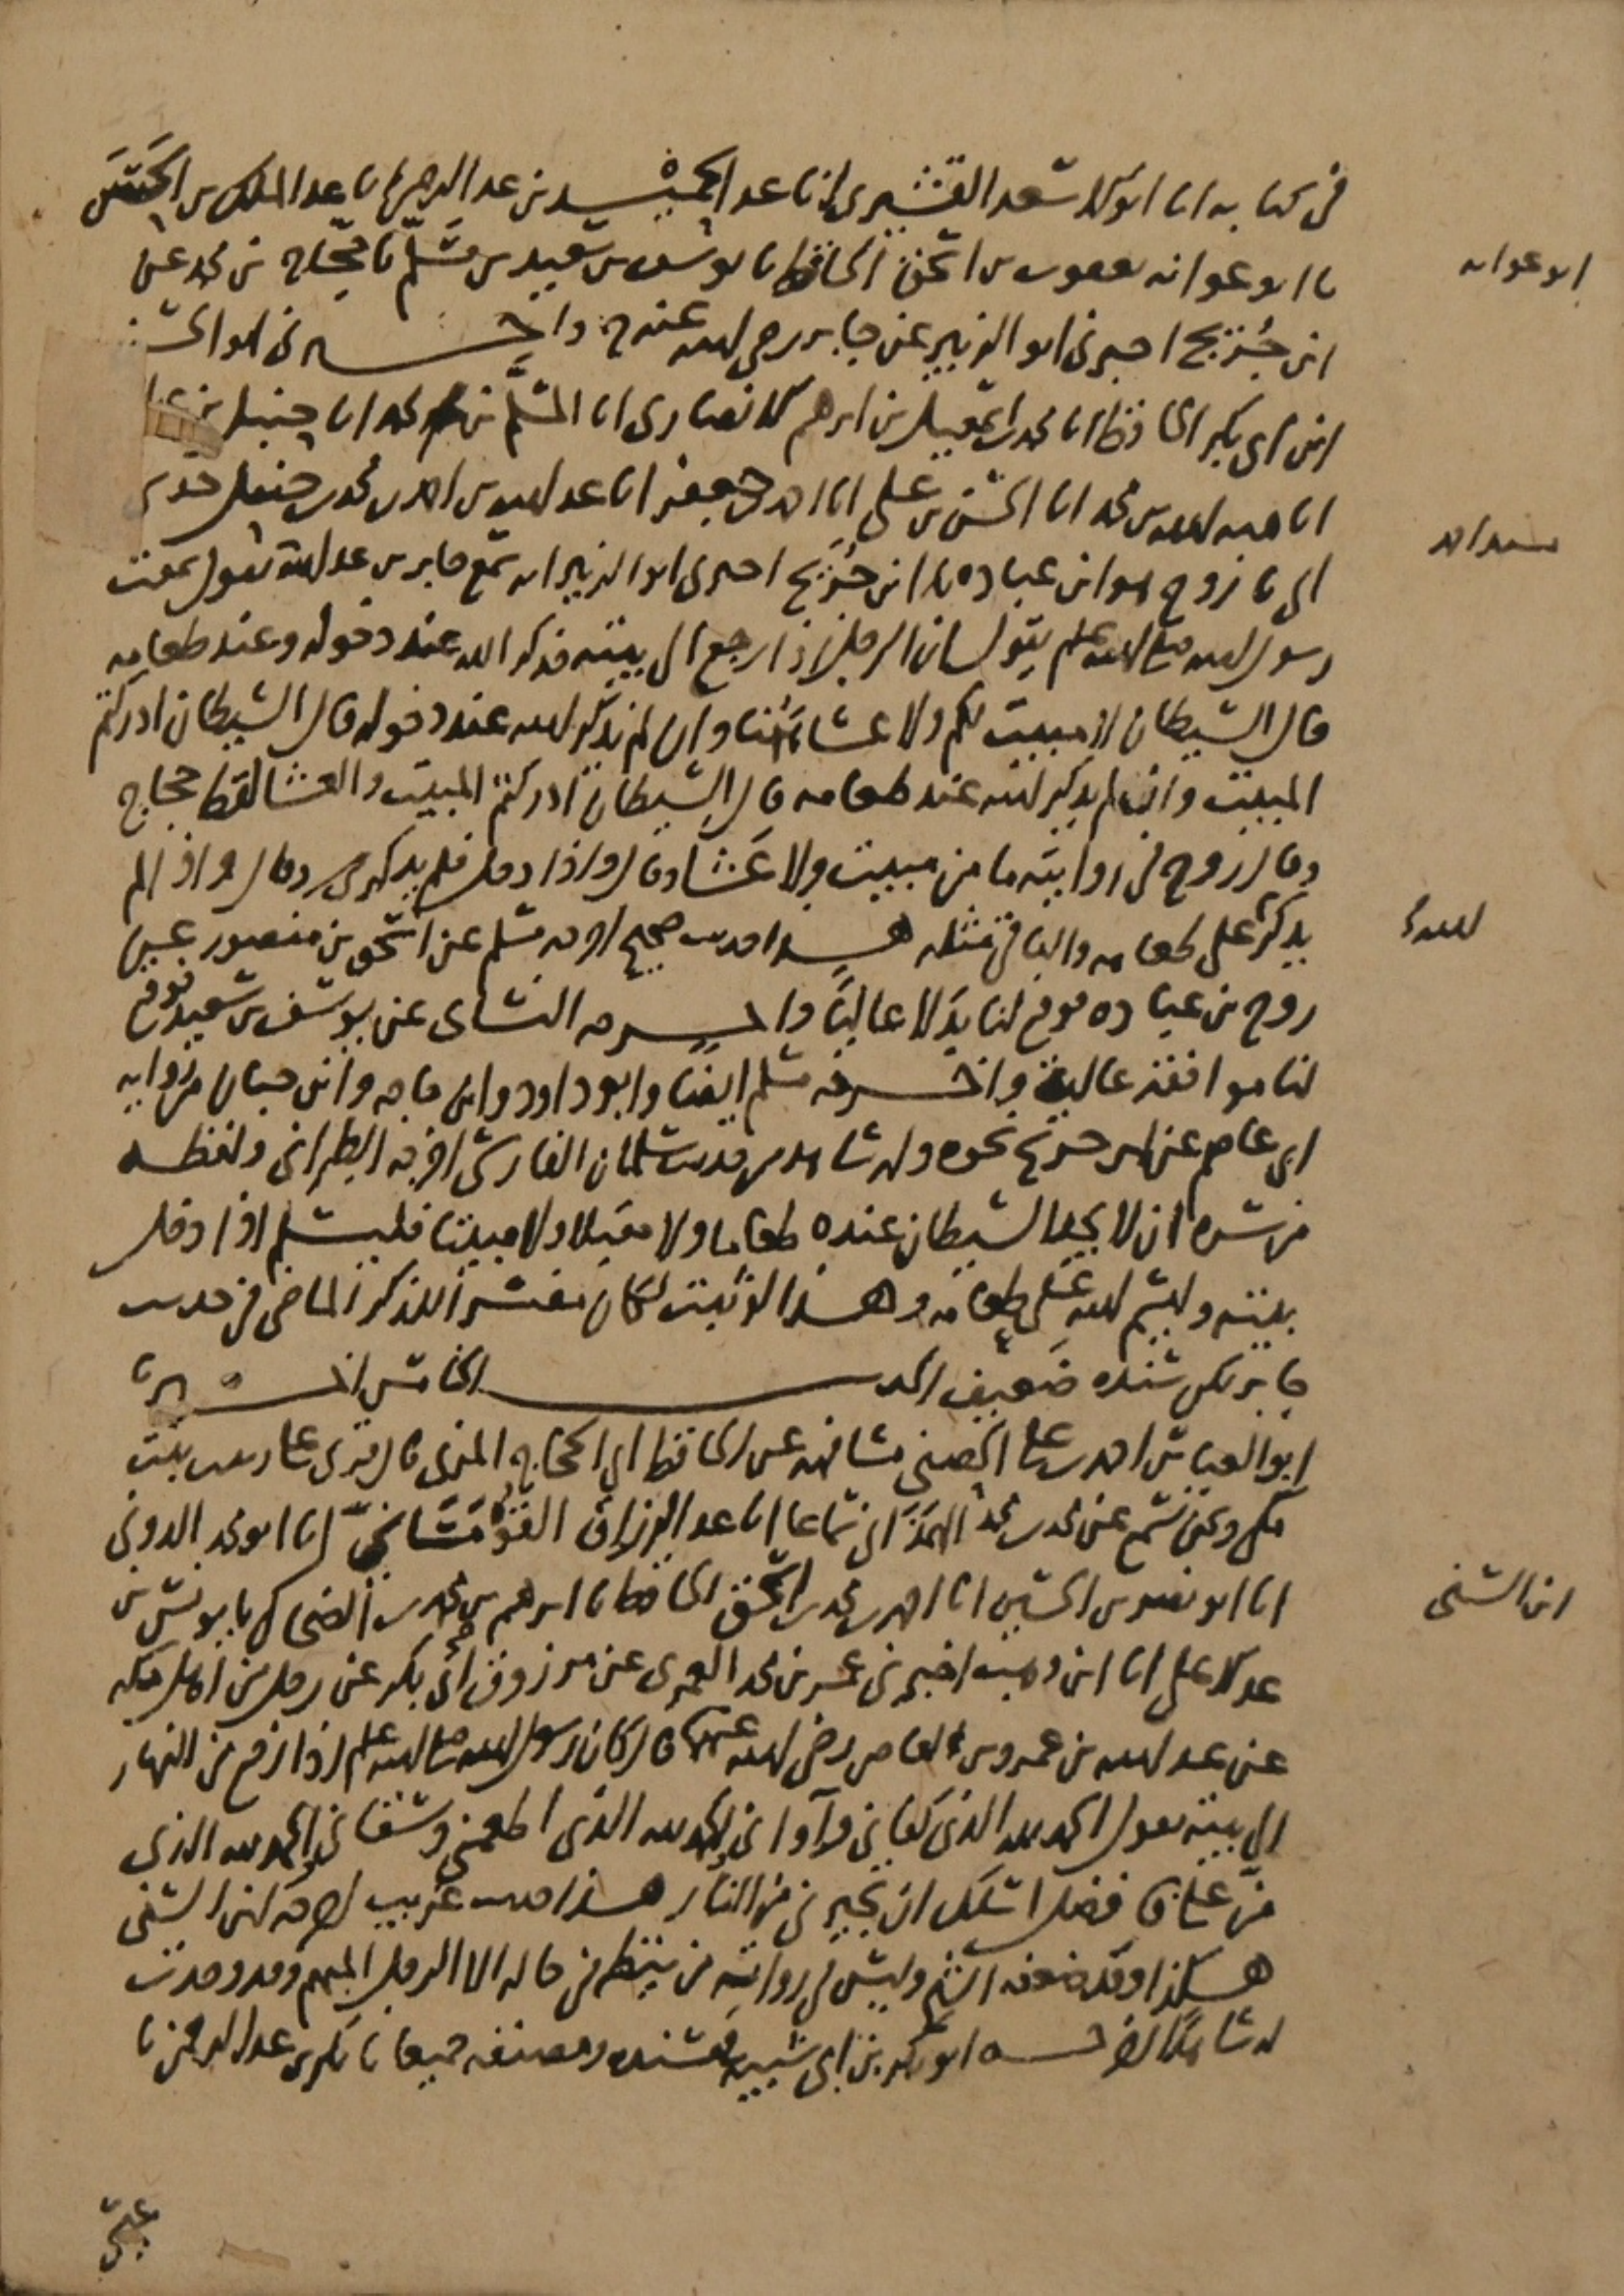 في كتابه انا ابو الاسعد القشيري انا عبد الحميد بن عبد الرحمن انا عبد الملك بن الحسن
نا ابو عوانه يعقوب بن اسحق الحافظ نا يوسف بن سعيد بن مسلم نا حجاج بن محمد عن
ابو عوانه
ابن جريج اخبرني ابو الزبير عن جابر رضي الله عنه ح واخبرني ابو الحسن
ابن ابي بكر الحافظ انا محمد بن اسمعيل بن ابرهيم الانصاري انا المسلم بن محمد انا حنبل بن
انا هبه الله بن محمد انا الحسن بن علي انا احمد بن جعفر انا عبد الله بن احمد بن محمد بن حنبل حدثني
مسند احمد
ابي نا روح هو ابن عباده نا ابن جريج اخبرني ابو الزبير انه سمع جابر بن عبد الله يقول سمعت
رسول الله صلى الله عليه وسلم يقول ان الرجل اذا رجع الى بيته فذكر الله عند دخوله وعند طعامه
قال الشيطان لا مبيت لكم ولا عشاء هنا وان لم يذكر الله عند دخوله قال الشيطان ادركتم
المبيت وان لم يذكر الله عند طعامه قال الشيطان ادركتم المبيت والعشا لفظ حجاج
وقال روح في روايته ما من مبيت ولا عشا وقال واذا دخل فلم يذكر وقال واذا لم
يذكر على طعامه والباقي مثله هذا حديث صحيح اخرجه مسلم عن اسحق بن منصور عن
روح بن عباده فوقع لنا بدلا عاليا واخرجه النسائي عن يوسف بن سعيد فوقع
لنا موافقة عالية واخرجه مسلم ايضا وابو داود وابن ماجه وابن حبان من رواية
ابي عاصم عن ابن جريج نحوه وله شاهد من حديث سلمان الفارسي اخرجه الطبراني ولفظه
من سره ان لا يجد الشيطان عنده طعاما ولا مقيلا ولا مبيتا فليسلم اذا دخل
بيته وليسم الله على طعامه وهذا لو ثبت لكان مفسرا للذكر الماضي في حديث
جابر لكن سنده ضعيف الحديث الخامس اخبرنا
ابو العباس احمد بن علي الحصني مشافهه عن الحافظ ابي الحجاج المزي قال قرئ على زينب بنت
مكي ونحن نسمع عن محمد بن محمد الهمذاني سماعا انا عبد الرزاق القومساني انا ابو محمد الدوني
انا ابو نصر بن الحسين انا احمد بن محمد بن اسحق الحافظ نا ابرهيم بن محمد بن الضحاك نا يونس بن
ابن السني
عبد الاعلى انا ابن وهب اخبرني عمر بن محمد العمري عن مرزوق بن ابي بكر عن رجل من اهل مكه
عن عبد الله بن عمرو بن العاص رضي الله عنهما قال كان رسول الله صلى الله عليه وسلم اذا رجع من النهار
الى بيته يقول الحمد لله الذي كفاني وآواني والحمد لله الذي اطعمني وسقاني والحمد لله الذي
من علي فافضل اسئلك ان تجيرني من النار هذا حديث غريب اخرجه ابن السني
هكذا وليس في روايته من ينظر في حاله الا الرجل المبهم وقد وجدت
له شاهدا اخرجه ابو بكر بن ابي شيبه في مسنده ومصنفه جميعا نا بكر بن عبد الرحمن نا
عيسى